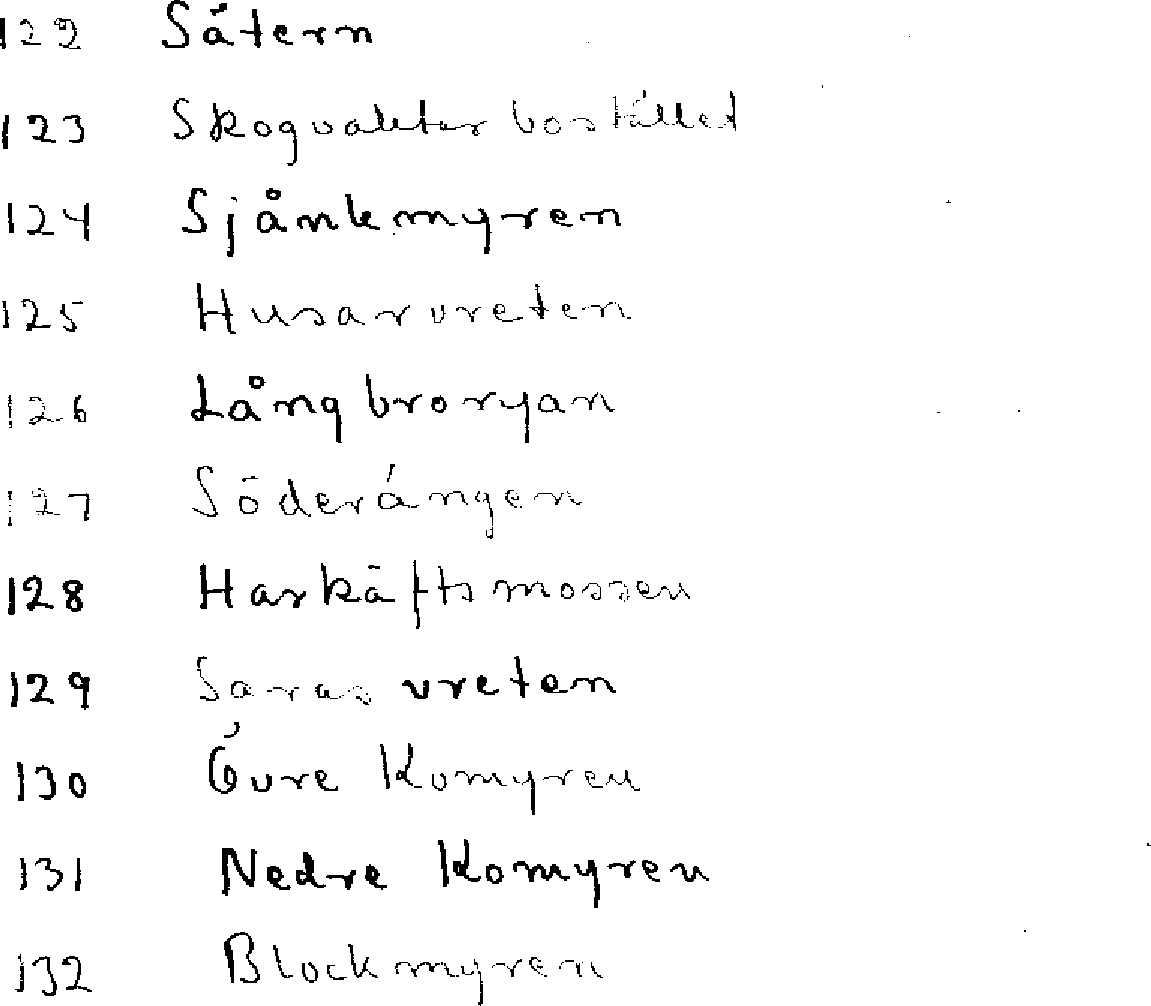 122 Sätern
123 Skogvaktarbostället
124 Sjånkmyren
125 Husarvreten
126 Långbroryan
127 Söderängen
128 Harkäftsmossen
129 Saras vreten
130 Övre Komyren
131 Nedre Komyren
132 Blockmyren